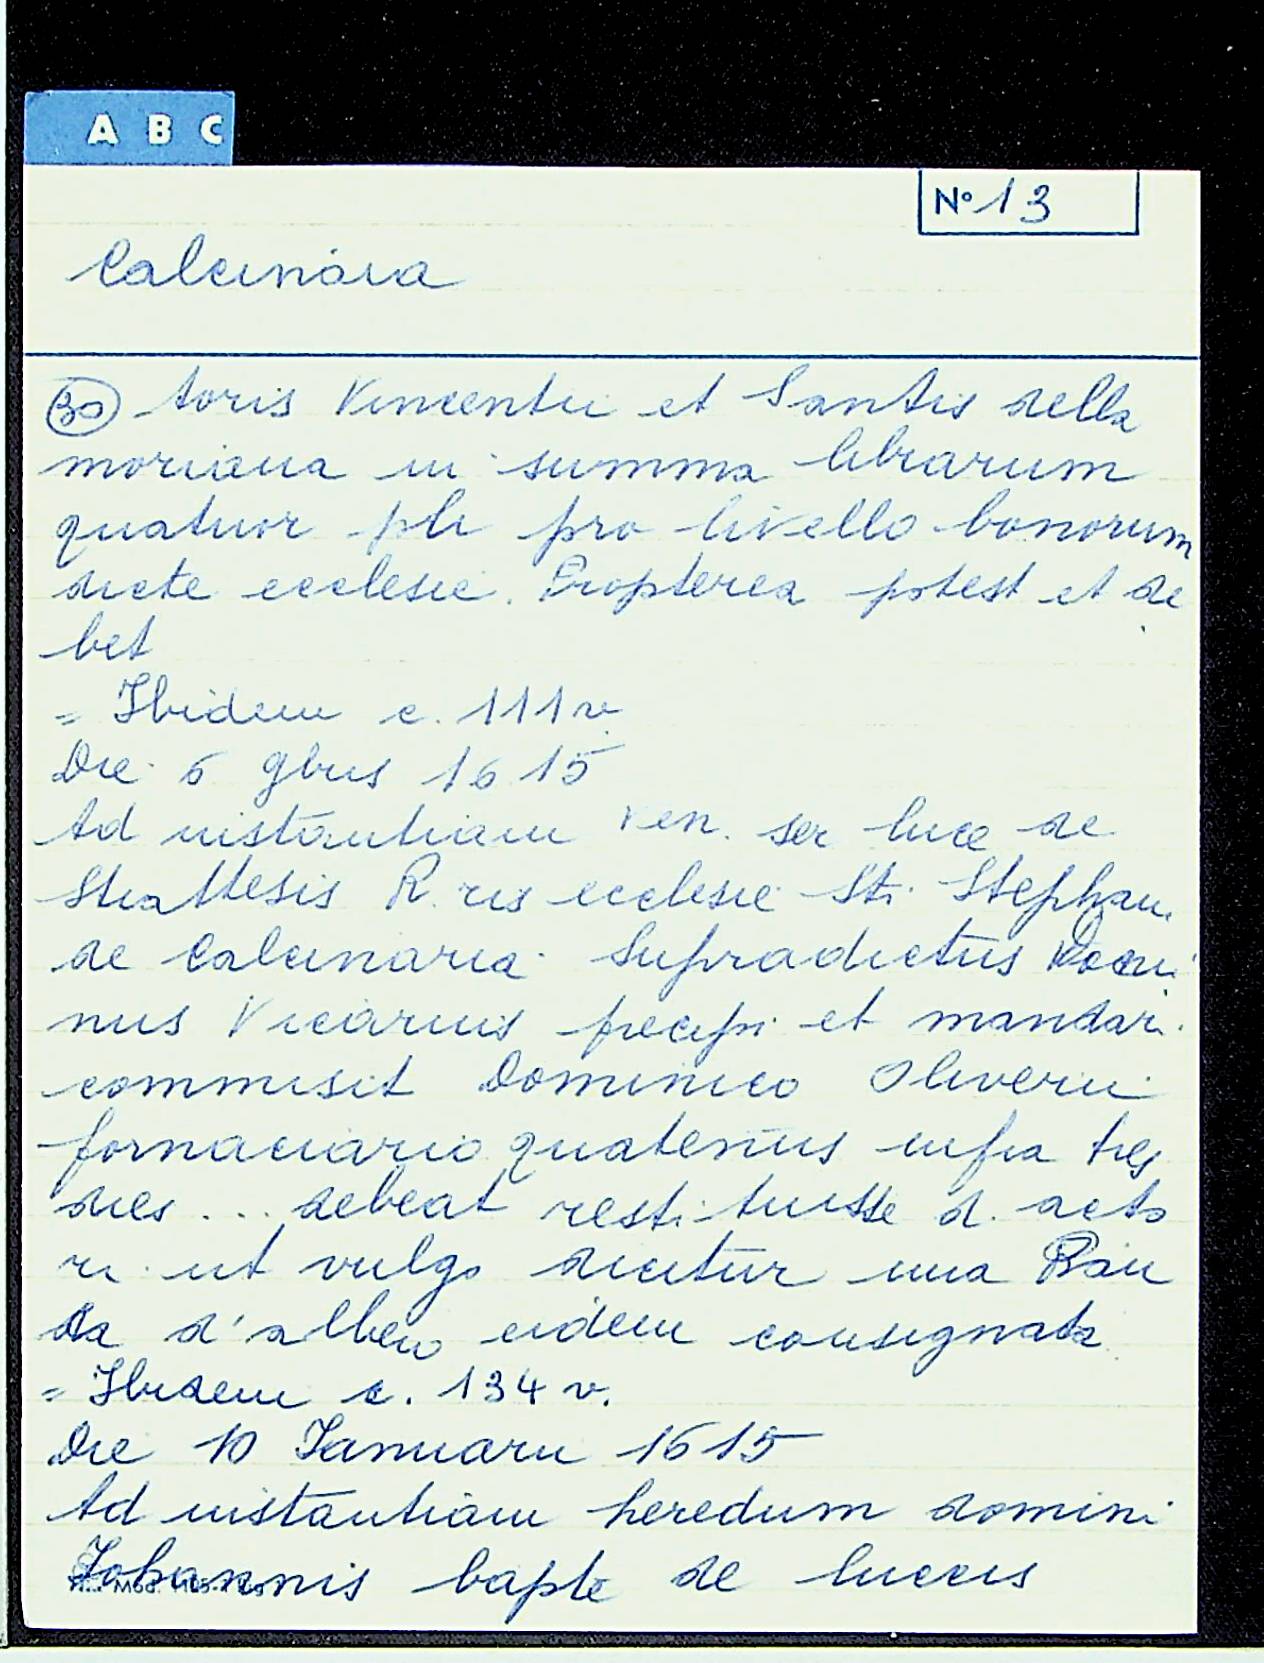 A B C
N° 13
Calcinaia
30 toris Vincentii et Santis della
moriana in summa librarum
quatuor pli pro livello bonorum
dicte ecclesie. Propterea potest et de
bet
= Ibidem c. 111 v.
Die 6 9bris 1615
Ad instantiam Ven. ser luce de
Strattesis R. ris ecclesie Sti Stephani
de Calcinaria. Supradictus
nus Vicarius precipi et mandari
commisit Dominico Oliverii
fornaciario quatenus infra tres
dies ... debeat restituisse d. acto
ri ut vulgo dicitur una Ban
da d'albero eidem consignata
= Ibidem c. 134 v.
Die 10 Ianuarii 1615
Ad instantiam heredum domini
Johannis bapte de luccis